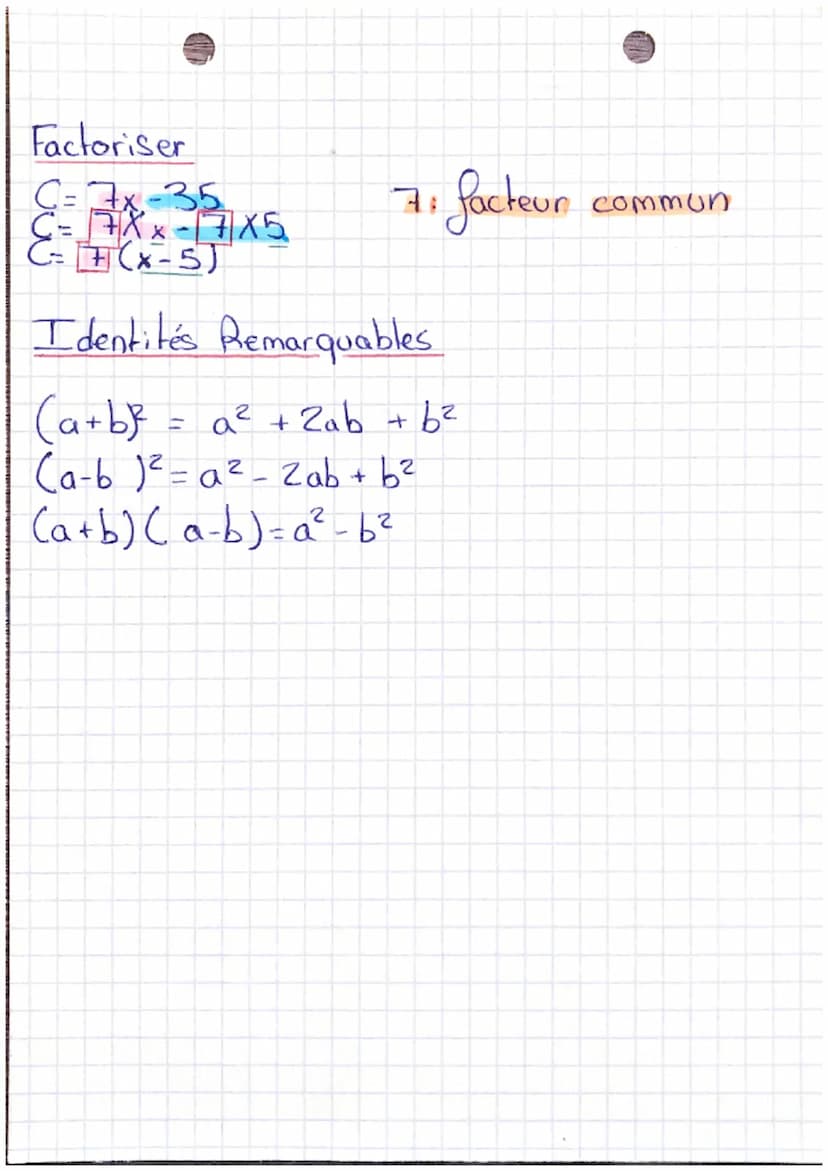 Factoriser
C= 7x -35
C= 7 X x - 7 X5
C= 7 (x-5)
7: facteur commun
Identités Remarquables
(a+b)² = a² + 2ab + b²
(a-b )² = a² - 2ab + b²
(a+b)( a-b) = a² - b²